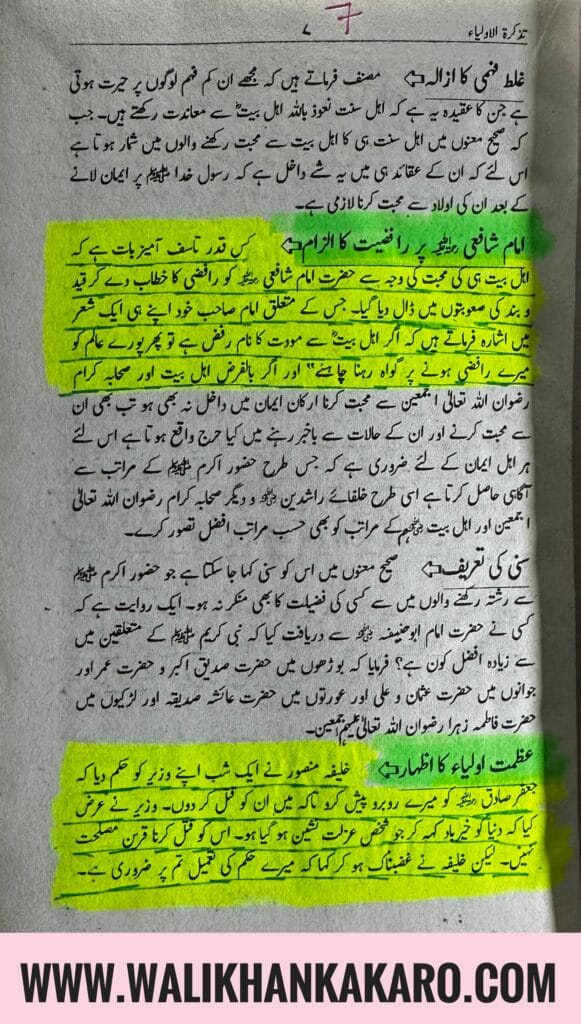 7
تذکرۃ الاولیاء ۷
غلط فہمی کا ازالہ مصنف فرماتے ہیں کہ مجھے ان کم فہم لوگوں پر حیرت ہوتی
ہے جن کا عقیدہ یہ ہے کہ اہل سنت نعوذ باللہ اہل بیتؓ سے معاندت رکھتے ہیں۔ جب
کہ صحیح معنوں میں اہل سنت ہی کا اہل بیت سے محبت رکھنے والوں میں شمار ہوتا ہے
اس لئے کہ ان کے عقائد ہی میں یہ شے داخل ہے کہ رسول خدا ﷺ پر ایمان لانے
کے بعد ان کی اولاد سے محبت کرنا لازمی ہے۔
امام شافعی رحمۃ اللہ علیہ پر رافضیت کا الزام کس قدر تاسف آمیز بات ہے کہ
اہل بیت ہی کی محبت کی وجہ سے حضرت امام شافعی رحمۃ اللہ علیہ کو رافضی کا خطاب دے کر قید
و بند کی صعوبتوں میں ڈال دیا گیا۔ جس کے متعلق امام صاحب خود اپنے ہی ایک شعر
میں اشارہ فرماتے ہیں کہ اگر اہل بیتؓ سے مودت کا نام رفض ہے تو پھر پورے عالم کو
میرے رافضی ہونے پر گواہ رہنا چاہئے" اور اگر بالفرض اہل بیت اور صحابہ کرام
رضوان اللہ تعالیٰ اجمعین سے محبت کرنا ارکان ایمان میں داخل نہ بھی ہو تب بھی ان
سے محبت کرنے اور ان کے حالات سے باخبر رہنے میں کیا حرج واقع ہوتا ہے اس لئے
ہر اہل ایمان کے لئے ضروری ہے کہ جس طرح حضور اکرم ﷺ کے مراتب سے
آگاہی حاصل کرتا ہے اسی طرح خلفائے راشدین و دیگر صحابہ کرام رضوان اللہ تعالیٰ
اجمعین اور اہل بیت کے مراتب کو بھی حسب مراتب افضل تصور کرے۔
سنی کی تعریف صحیح معنوں میں اس کو سنی کہا جا سکتا ہے جو حضور اکرم ﷺ
سے رشتہ رکھنے والوں میں سے کسی کی فضیلت کا بھی منکر نہ ہو۔ ایک روایت ہے کہ
کسی نے حضرت امام ابوحنیفہ سے دریافت کیا کہ نبی کریم ﷺ کے متعلقین میں
سے زیادہ افضل کون ہے؟ فرمایا کہ بوڑھوں میں حضرت صدیق اکبر و حضرت عمر اور
جوانوں میں حضرت عثمان و علی اور عورتوں میں حضرت عائشہ صدیقہ اور لڑکیوں میں
حضرت فاطمہ زہرا رضوان اللہ تعالیٰ علیہم اجمعین۔
عظمت اولیاء کا اظہار خلیفہ منصور نے ایک شب اپنے وزیر کو حکم دیا کہ
جعفر صادق کو میرے روبرو پیش کرو تاکہ میں ان کو قتل کر دوں۔ وزیر نے عرض
کیا کہ دنیا کو خیرباد کہہ کر جو شخص عزلت نشین ہو گیا ہو۔ اس کو قتل کرنا قرین مصلحت
نہیں۔ لیکن خلیفہ نے غضبناک ہو کر کہا کہ میرے حکم کی تعمیل تم پر ضروری ہے۔
WWW.WALIKHANKAKARO.COM